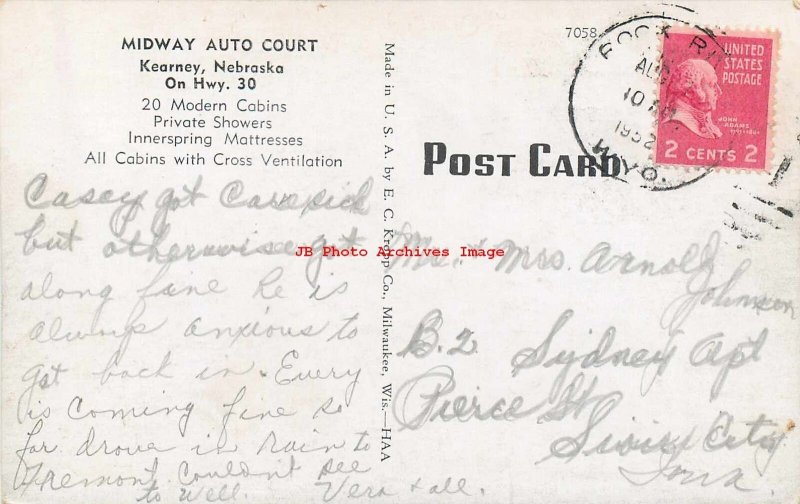 MIDWAY AUTO COURT
Kearney, Nebraska
On Hwy. 30
20 Modern Cabins
Private Showers
Innerspring Mattresses
All Cabins with Cross Ventilation
Casey got Caresick
but otherwise got
along fine he is
always anxious to
get back in. Every
is coming fine so
far drove in Rain to
Fremont. Couldn't see
to well. Vera & all.
Made in U. S. A. by E. C. Kropp Co., Milwaukee, Wis.—HAA
7058
POST CARD
ROCK RI
AUG
10 AM
1952
WYO.
UNITED
STATES
POSTAGE
JOHN
ADAMS
2 CENTS 2
Mr. & Mrs. Arnold
Johnson
B. 2 Sydney Apt
Pierce St
Sioux City
Iowa
JB Photo Archives Image